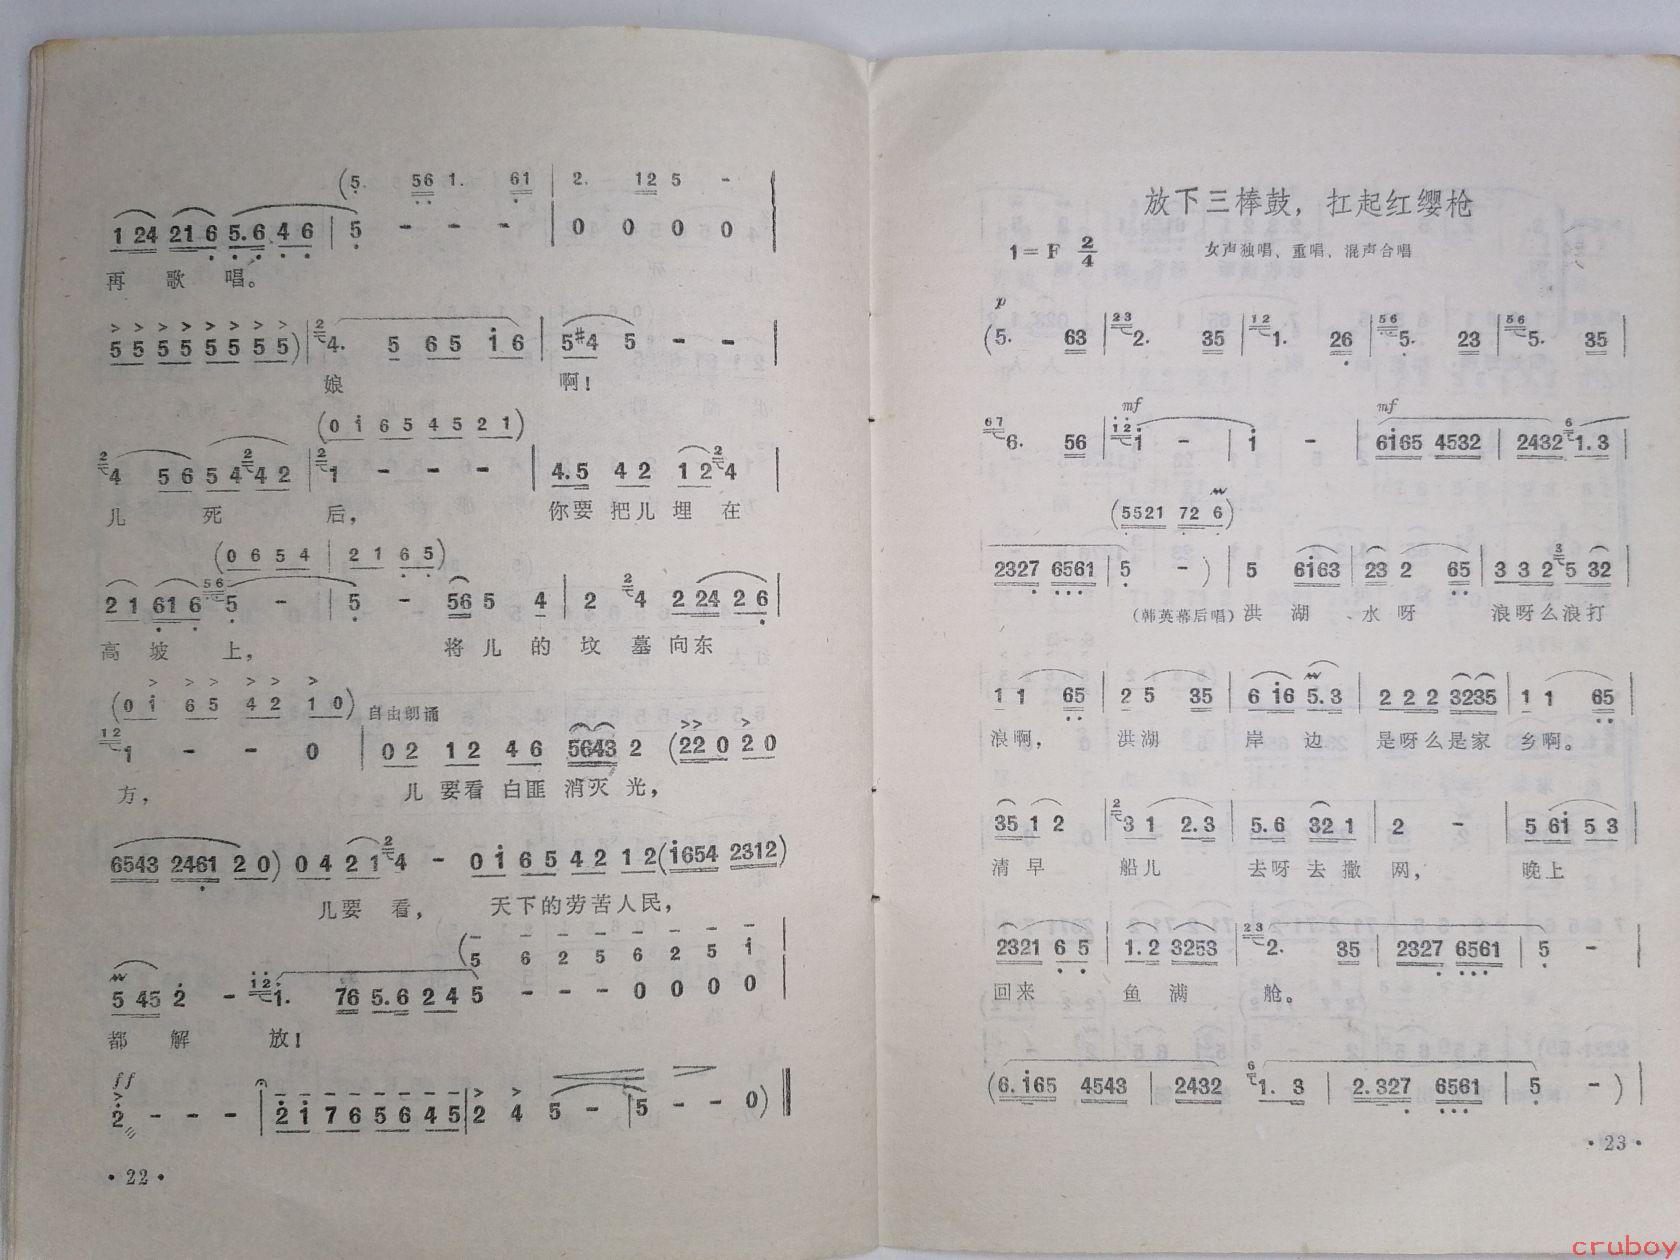 (5. 56 1. 61 | 2. 12 5 - |
1 24 21 6 5.6 4 6 | 5 - - - | 0 0 0 0 |
再 歌 唱。
5 5 5 5 5 5 5 5) | 4. 5 6 5 i 6 | 5 #4 5 - - |
娘 啊!
(0 i 6 5 4 5 2 1)
4 5 6 5 4 4 2 | 1 - - - | 4.5 4 2 1 2 4 |
儿 死 后, 你要 把儿 埋 在
(0 6 5 4 | 2 1 6 5)
2 1 61 6 5 - | 5 - 56 5 4 | 2 4 2 24 2 6 |
高 坡 上, 将 儿 的 坟 墓 向东
(0 i 6 5 4 2 1 0) 自由朗诵
1 - - 0 | 0 2 1 2 4 6 5643 2 (22 0 2 0
方, 儿 要看 白匪 消灭 光,
6543 2461 2 0) 0 4 2 1 4 - 0 i 6 5 4 2 1 2 (i654 2312)
儿要 看, 天下的劳苦人民,
(5 6 2 5 6 2 5 i |
5 45 2 - 1. 76 5.6 2 4 5 - - - 0 0 0 0 |
都 解 放!
ff
2 - - - | 2 i 7 6 5 6 4 5 | 2 4 5 - | 5 - - 0) ‖
·22·
放下三棒鼓，扛起红缨枪
1=F 2/4 女声独唱、重唱、混声合唱
p
(5. 63 | 2. 35 | 1. 26 | 5. 23 | 5. 35 |
mf mf
6. 56 | i - | i - | 6i65 4532 | 2432 1.3 |
(5521 72 6)
2327 6561 | 5 - ) | 5 6i63 | 23 2 65 | 3 3 2 5 32 |
(韩英幕后唱) 洪 湖 水 呀 浪呀么浪打
1 1 65 | 2 5 35 | 6 i6 5.3 | 2 2 2 3235 | 1 1 65 |
浪啊, 洪湖 岸 边 是呀么是家 乡啊。
35 1 2 | 3 1 2.3 | 5.6 32 1 | 2 - | 5 6i 5 3 |
清 早 船儿 去呀 去 撒 网, 晚上
2321 6 5 | 1.2 3253 | 2. 35 | 2327 6561 | 5 - |
回来 鱼 满 舱。
(6.i65 4543 | 2432 1. 3 | 2.327 6561 | 5 - ) |
·23·
cruboy